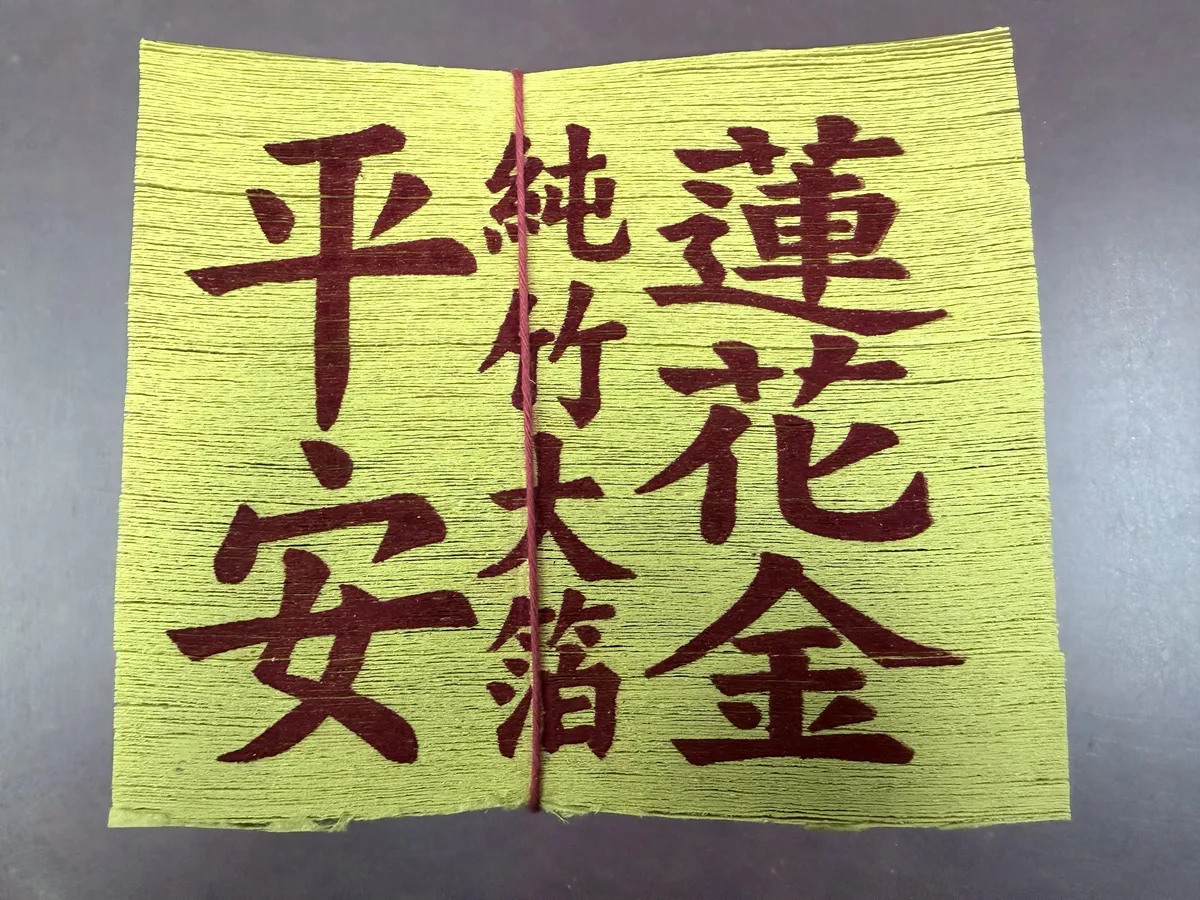 蓮花金
純竹大箔
平安